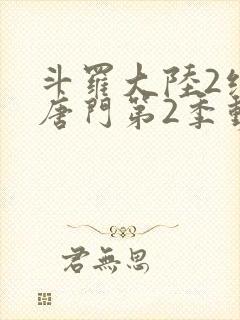 斗羅大陸2
唐門第2季
君無思